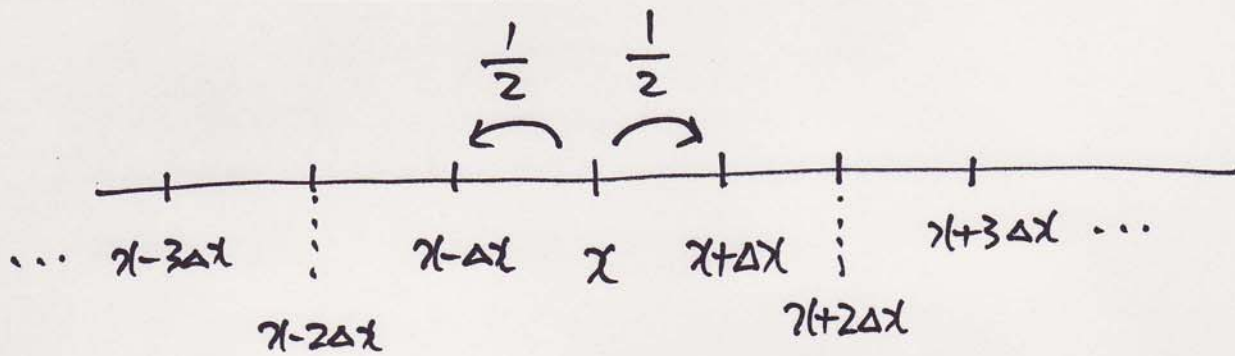 1/2 1/2
... x-3Δx x-Δx x x+Δx x+3Δx ...
x-2Δx x+2Δx